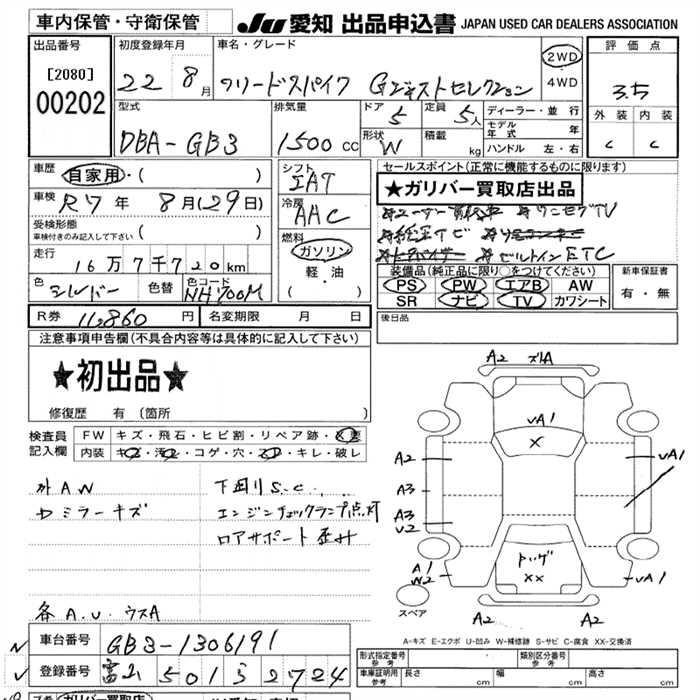 車内保管・守衛保管 JU 愛知 出品申込書 JAPAN USED CAR DEALERS ASSOCIATION
出品番号 初度登録年月 車名・グレード 評価点
[2080] 22 8月 フリードスパイク Gジャストセレクション 2WD 4WD 3.5
00202 外装 内装
C C
型式 排気量 ドア 定員 ディーラー・並行
DBA-GB3 1500cc 5 5人 モデル年式 年
形状 W 積載 kg ハンドル 左・右
車歴 自家用・( ) シフト IAT セールスポイント(正常に機能するものに限ります)
★ガリバー買取店出品
車検 R7年 8月(29日) 冷房 AAC
受検形態 車検付きのみ記入して下さい ( )
ワンセグTV
ビルトインETC
燃料 ガソリン 軽・油 ( )
走行 16万7千720km
装備品(純正品に限り○をつけてください) 新車保証書
色 シルバー 色替 色コード NH700M
PS PW エアB AW 有・無
SR ナビ TV カワシート
R券 11,860円 名変期限 月 日 後日品
注意事項申告欄(不具合内容等は具体的に記入して下さい)
★初出品★
修復歴 有 (箇所 )
検査員記入欄 FW キズ・飛石・ヒビ割・リペア跡・X要
内装 キズ・汚れ・コゲ・穴・スレ・キレ・破レ
外AW 下回りS.C.
ミラーキズ エンジンチェックランプ点灯
ロアサポート歪み
各A.U.ウスA
A2 ズレA
VA1
X
A2 VA1
A3
A3
U2
トハゲ
XX
A1
W2
スペア
A2 A2
A-キズ E-エクボ U-凹み W-補修跡 S-サビ C-腐食 XX-交換済
車台番号 GB3-1306191
形式指定番号 参考 類別区分番号 参考
登録番号 富山 501 ミ 2724
車庫証明用 参考 長さ cm 幅 cm 高さ cm
ガリバー買取店